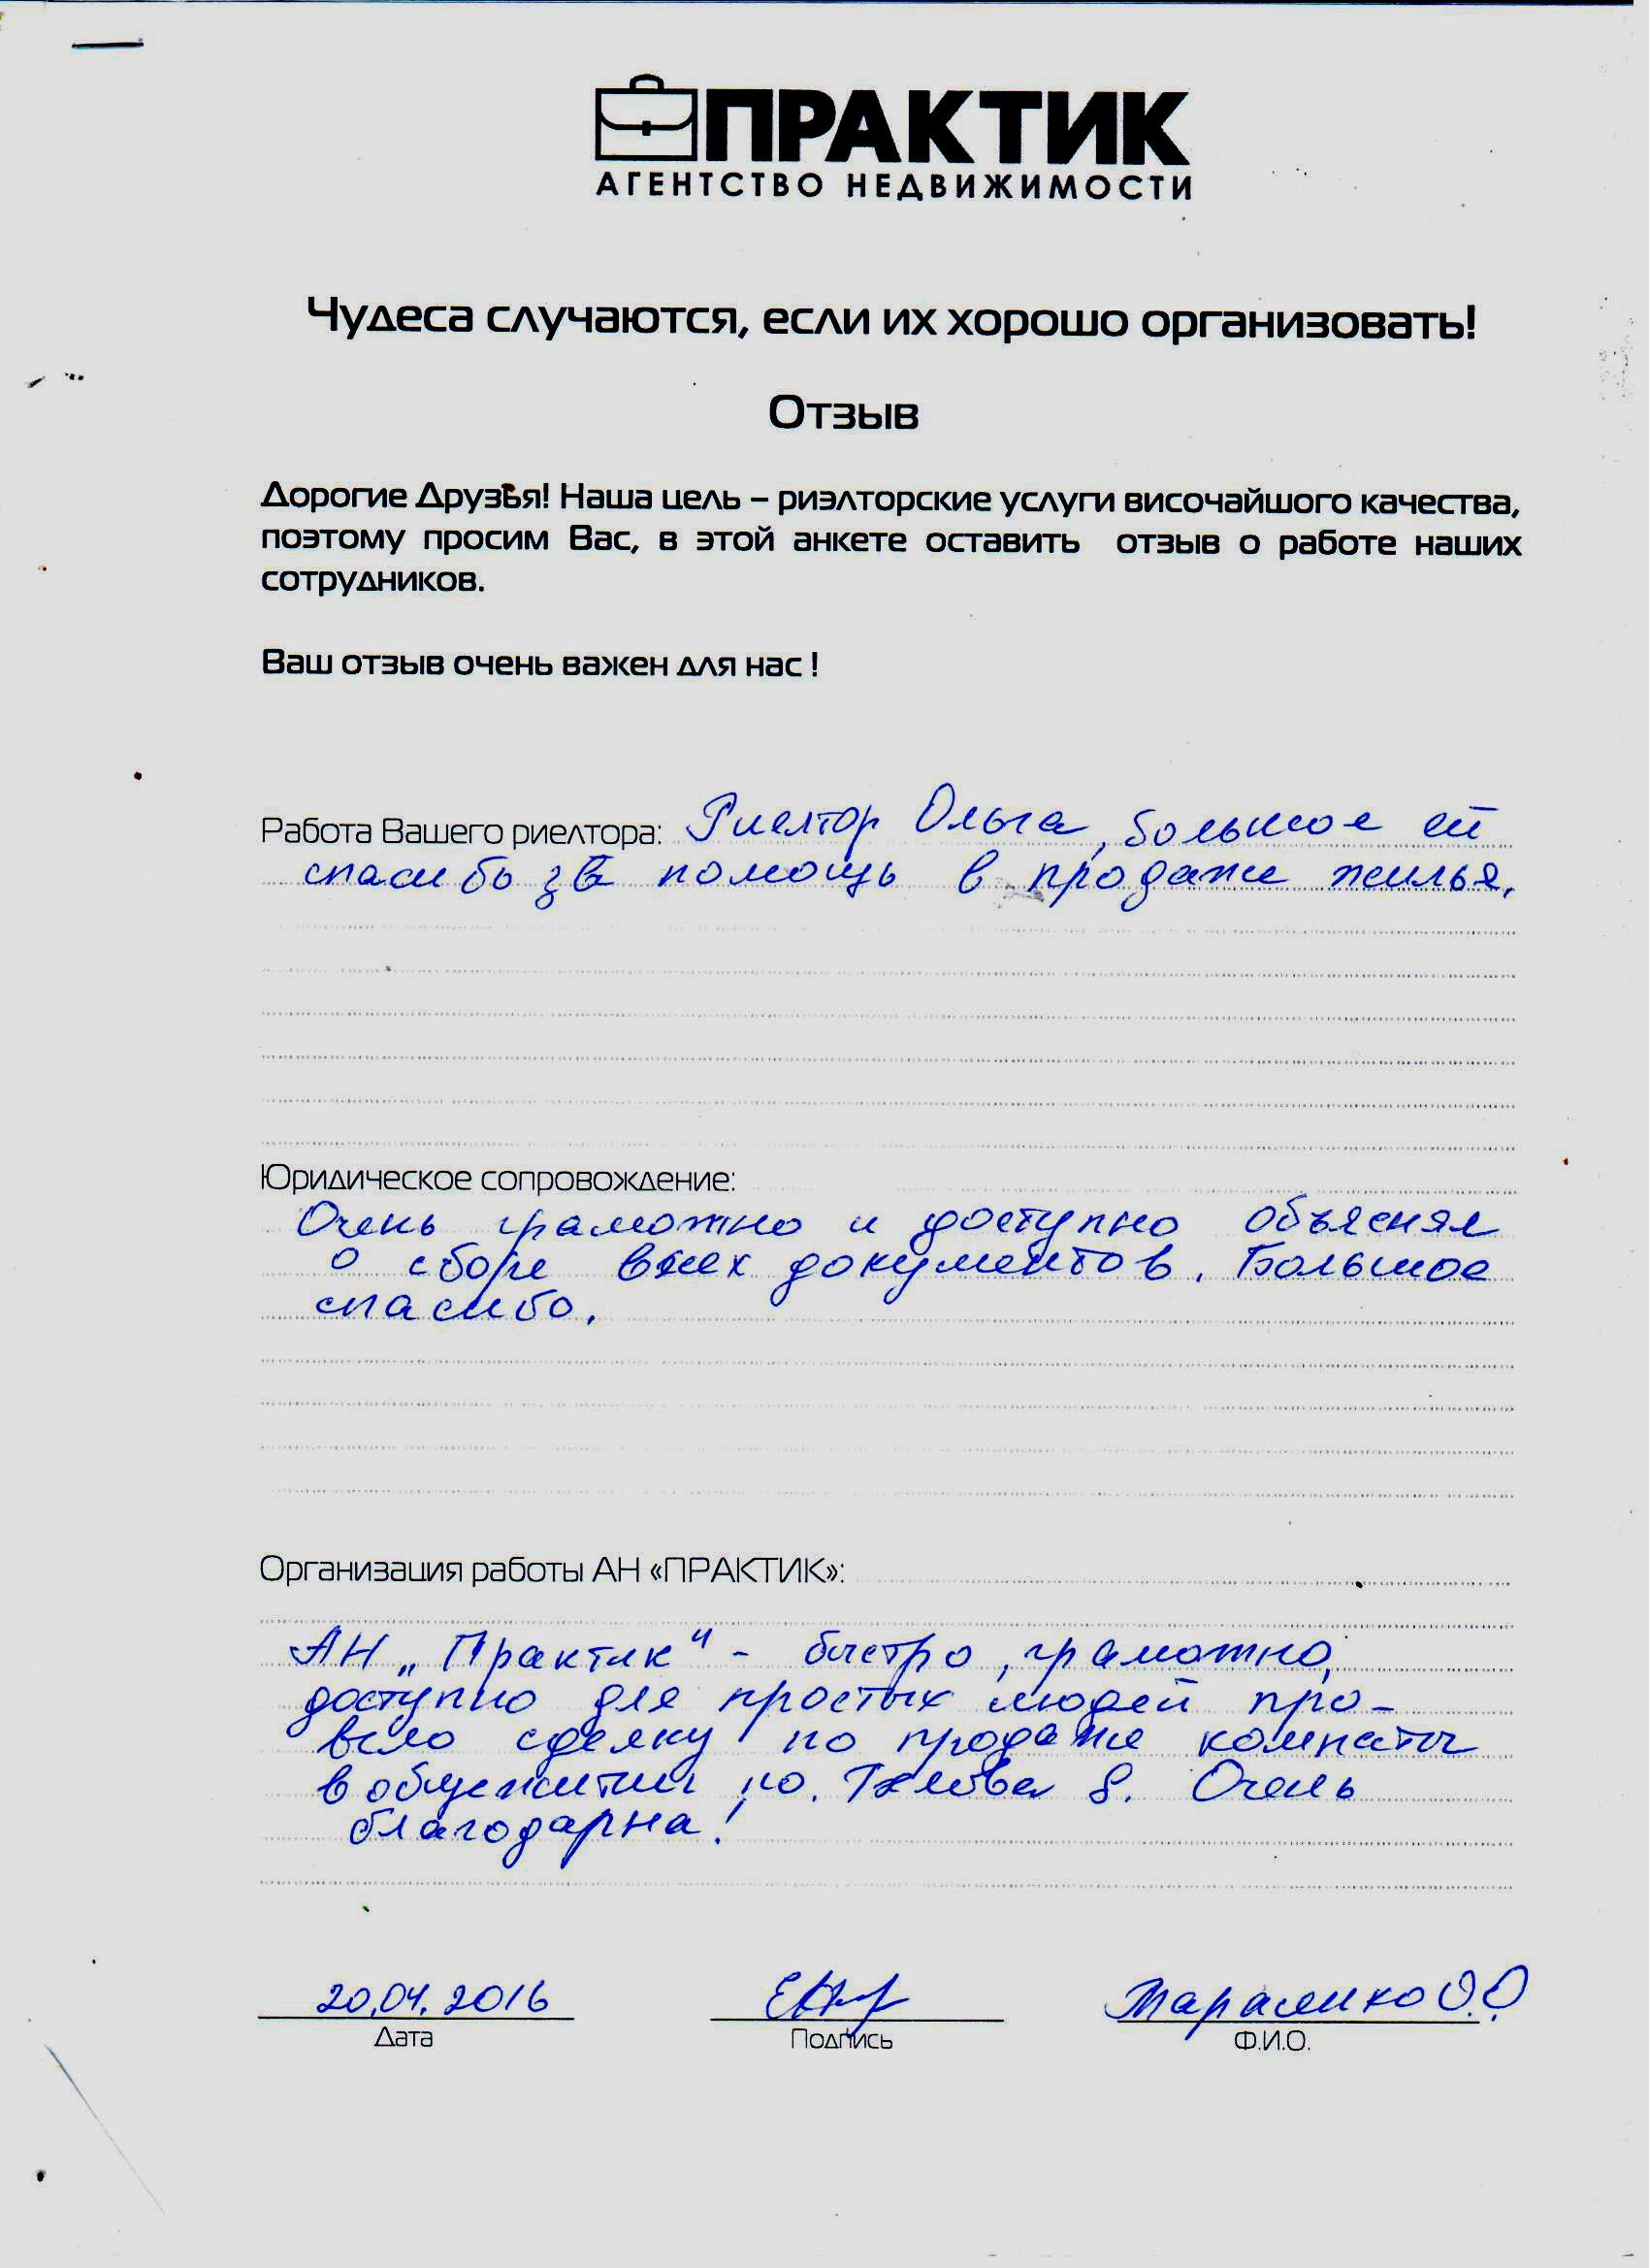 ПРАКТИК
АГЕНТСТВО НЕДВИЖИМОСТИ
Чудеса случаются, если их хорошо организовать!
Отзыв
Дорогие Друзья! Наша цель – риэлторские услуги височайшого качества,
поэтому просим Вас, в этой анкете оставить отзыв о работе наших
сотрудников.
Ваш отзыв очень важен для нас !
Работа Вашего риелтора: Риелтор Ольга, большое ей
спасибо за помощь в продаже жилья.
Юридическое сопровождение:
Очень грамотно и доступно объяснял
о сборе всех документов. Большое
спасибо.
Организация работы АН «ПРАКТИК»:
АН „Практик" - быстро, грамотно,
доступно для простых людей про-
вело сделку по продаже комнаты
в общежитии по. 8. Очень
благодарна!
20.04.2016
Дата
Подпись
О.О
Ф.И.О.